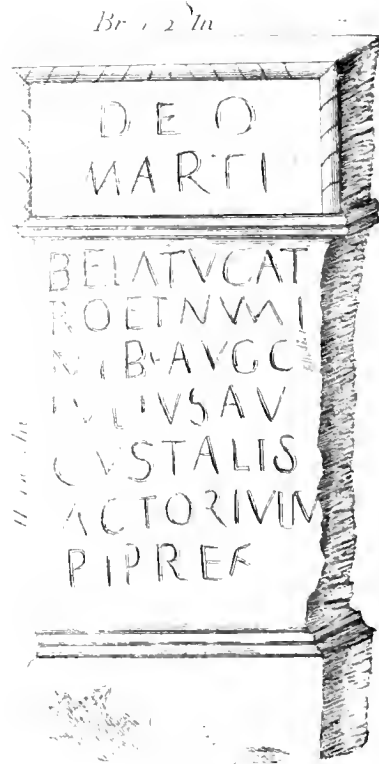 DEO
MARTI
BELATVCAT
ROETNVMI
NIB·AVGC
IVLIVSAV
CVSTALIS
ACTORIVLIV
PIPREF